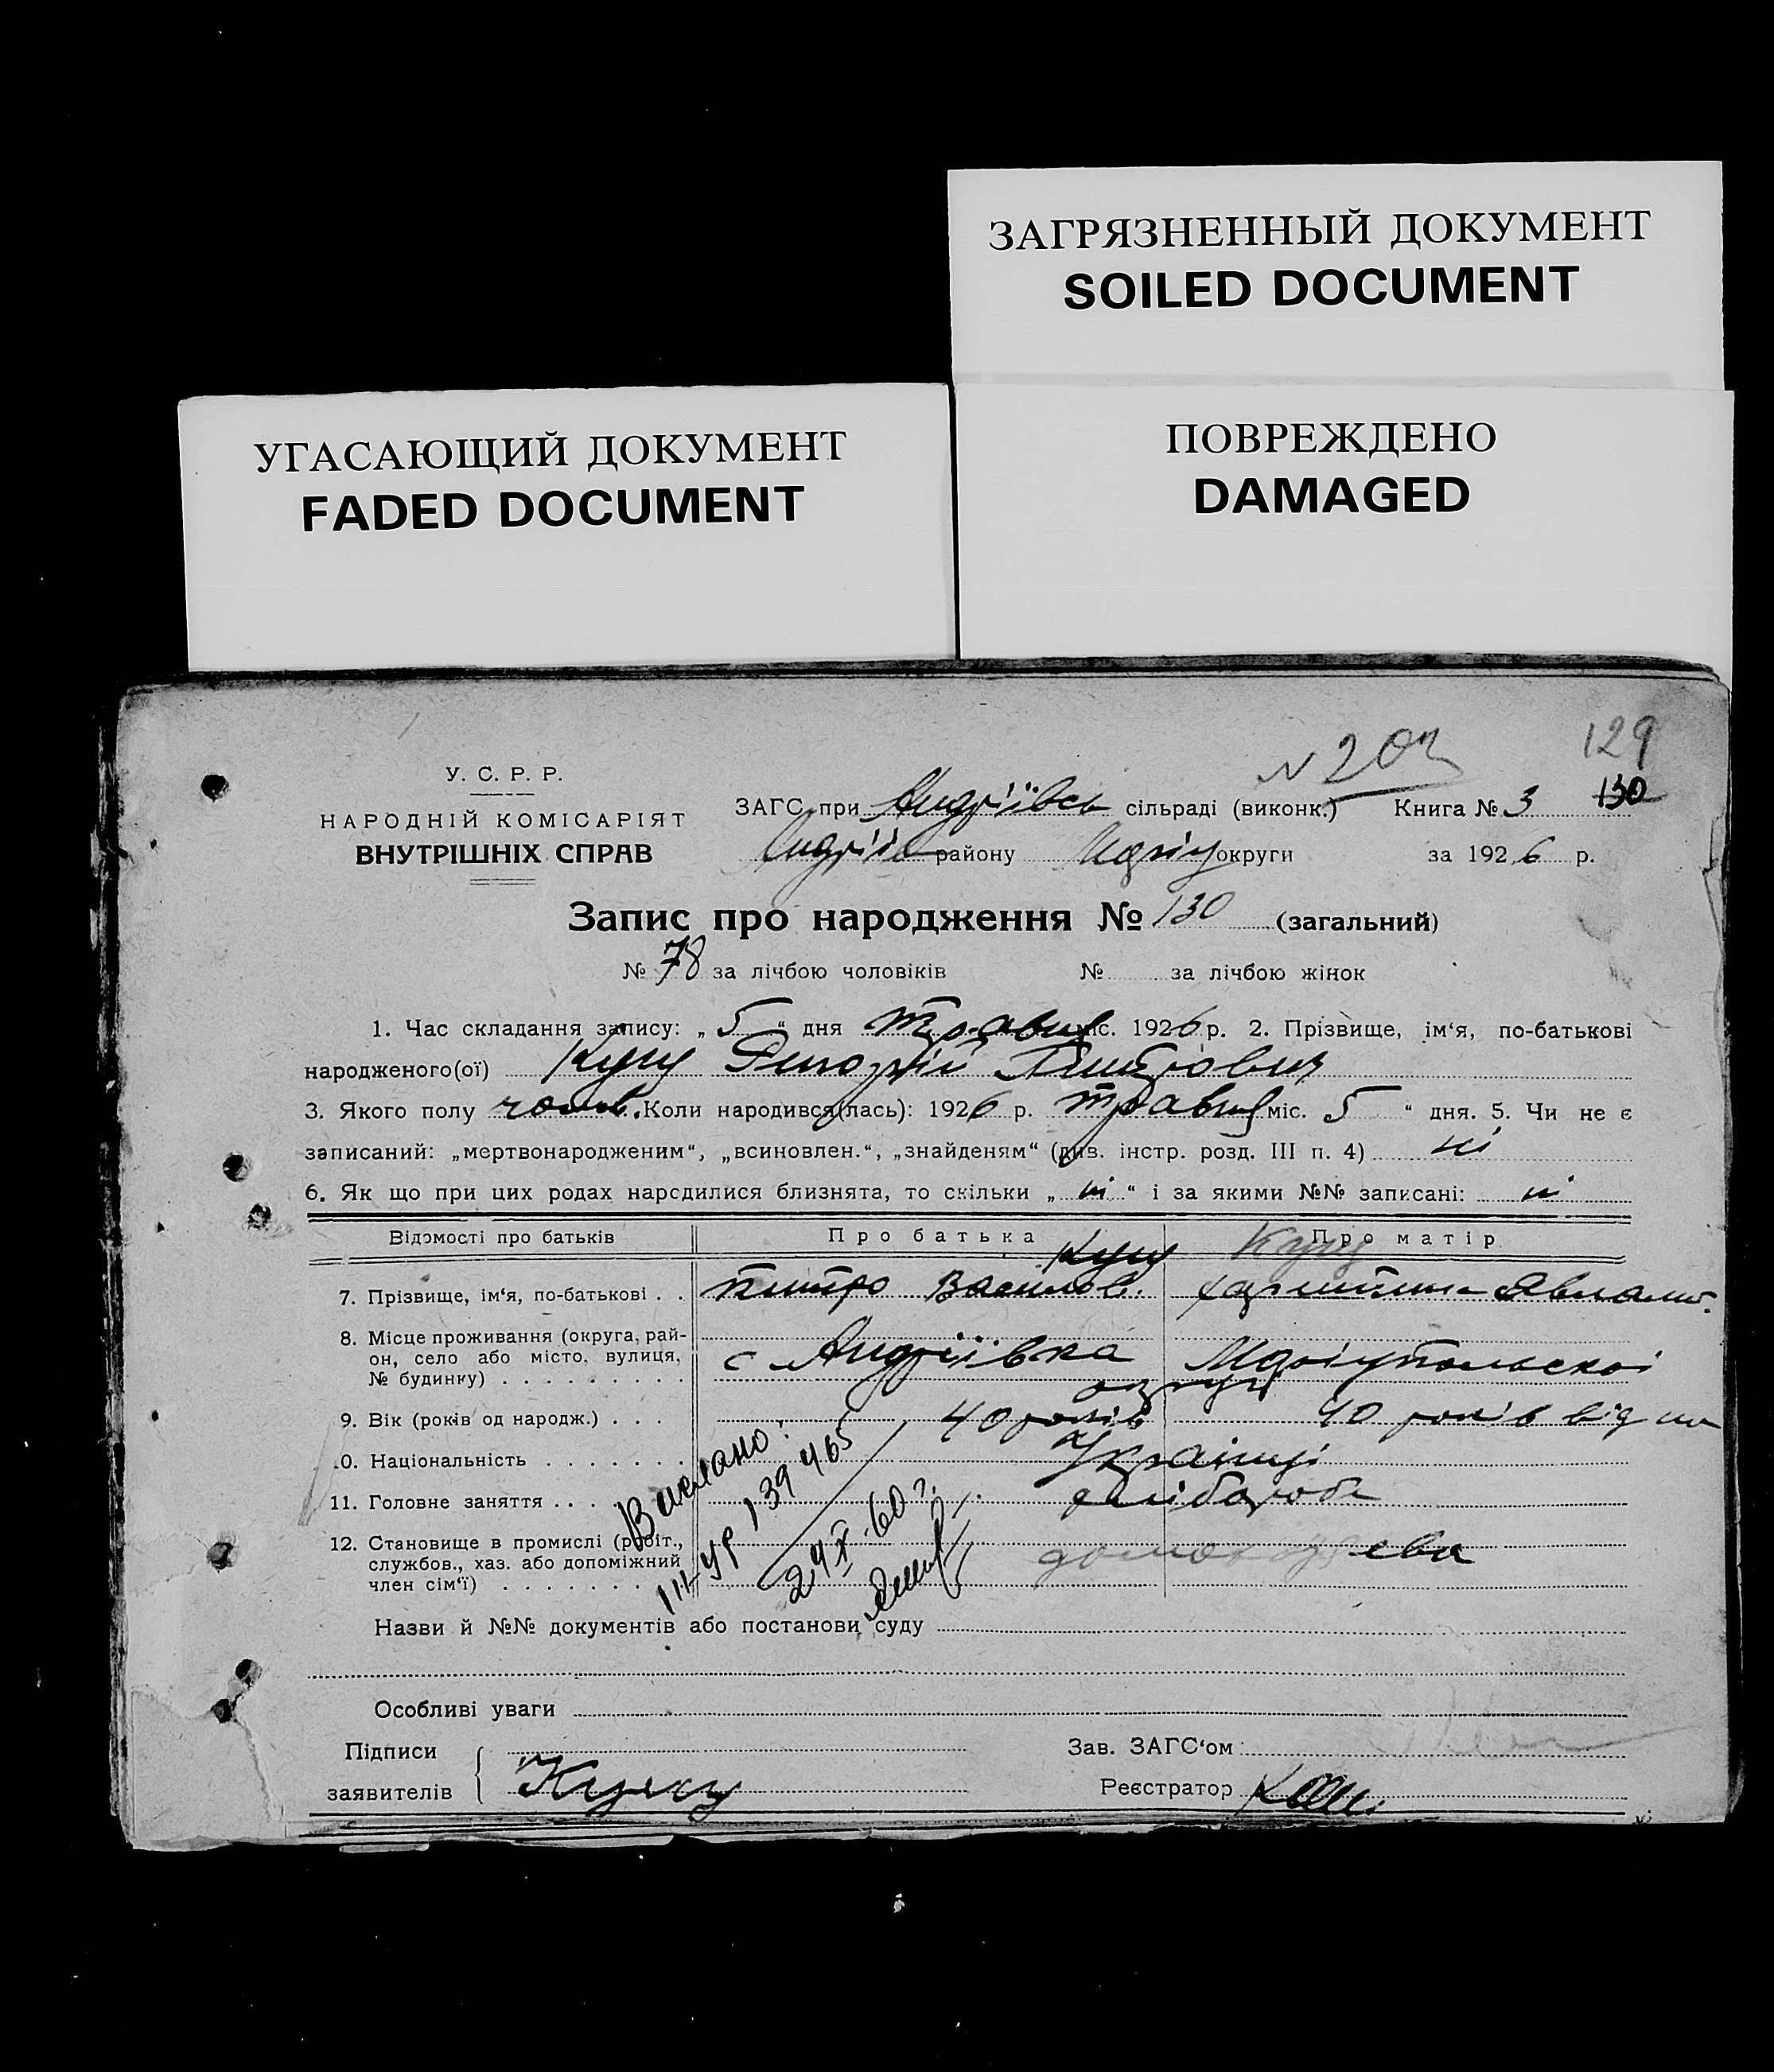 ЗАГРЯЗНЕННЫЙ ДОКУМЕНТ
SOILED DOCUMENT
УГАСАЮЩИЙ ДОКУМЕНТ
FADED DOCUMENT
ПОВРЕЖДЕНО
DAMAGED
129
N 203
У. С. Р. Р.
НАРОДНІЙ КОМІСАРІЯТ
ВНУТРІШНІХ СПРАВ
ЗАГС при Андріївсь сільраді (виконк.) Книга № 3 130
Андріїв району Маріу округи за 1926 р.
Запис про народження № 130 (загальний)
№ 78 за лічбою чоловіків № за лічбою жінок
1. Час складання запису: „ 5 “ дня травня міс. 1926 р. 2. Прізвище, ім‘я, по-батькові
народженого(ої) Куцу
3. Якого полу чолов. Коли народився(лась): 1926 р. травня міс. 5 “ дня. 5. Чи не є
записаний: „мертвонародженим“, „всиновлен.“, „знайденям“ (див. інстр. розд. III п. 4) ні
6. Як що при цих родах народилися близнята, то скільки „ ні “ і за якими №№ записані: ні
Відомості про батьків Про батька Про матір
Куцу Куцу
7. Прізвище, ім‘я, по-батькові . . Пилипро Василов.
8. Місце проживання (округа, рай-
он, село або місто, вулиця,
№ будинку) . . . . . . . . . с Андріївка Маріупольскоі
округі
9. Вік (років од народж.) . . . 40 років 40 років від
10. Національність . . . . . . . Українці
11. Головне заняття . . . хліборобь
12. Становище в промислі (робіт.,
службов., хаз. або допоміжний
член сім‘ї) . . . . . . . .
Вислано:
III-УР 139465
24 X 60 г.
Назви й №№ документів або постанови суду
Особливі уваги
Підписи
заявителів Куцу
Зав. ЗАГС‘ом
Реєстратор